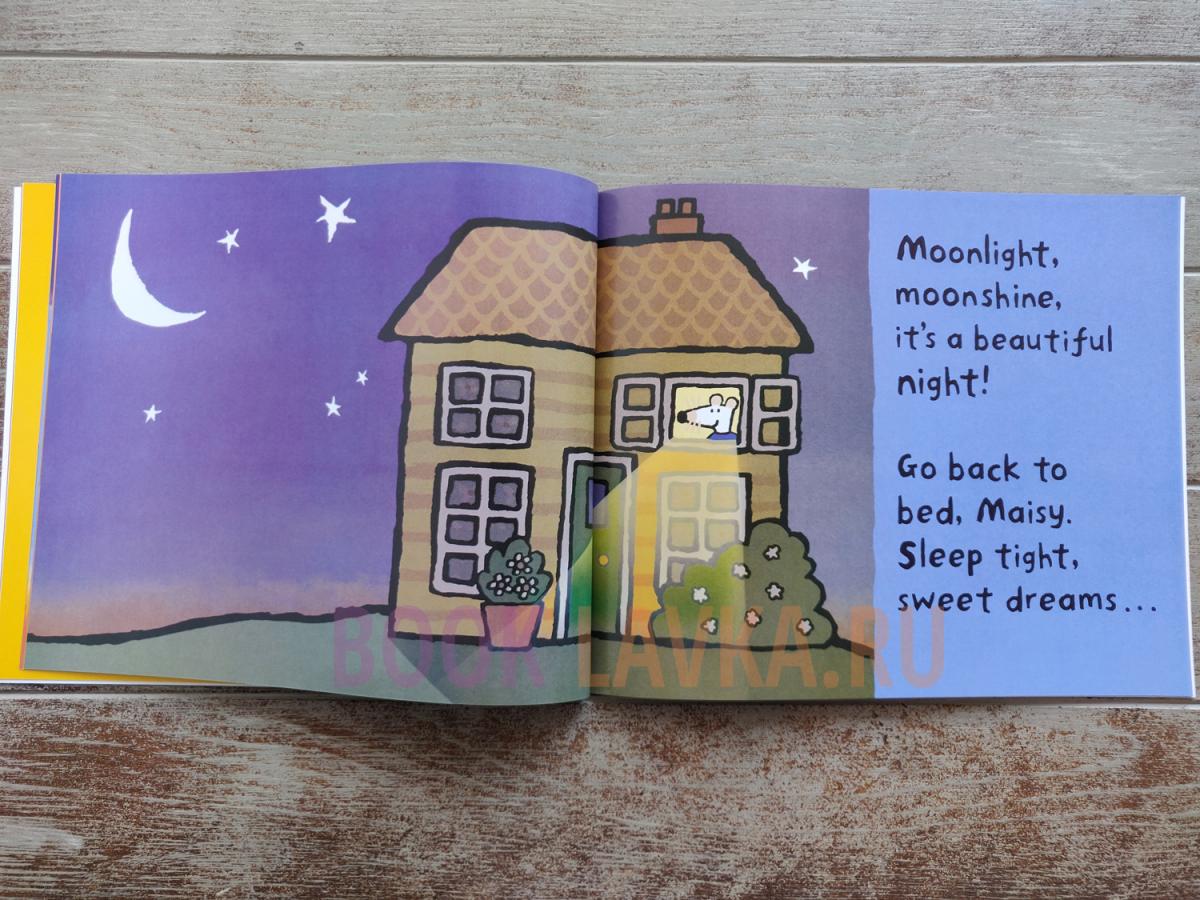 Moonlight,
moonshine,
it's a beautiful
night!
Go back to
bed, Maisy.
Sleep tight,
sweet dreams...
BOOK-LAVKA.RU